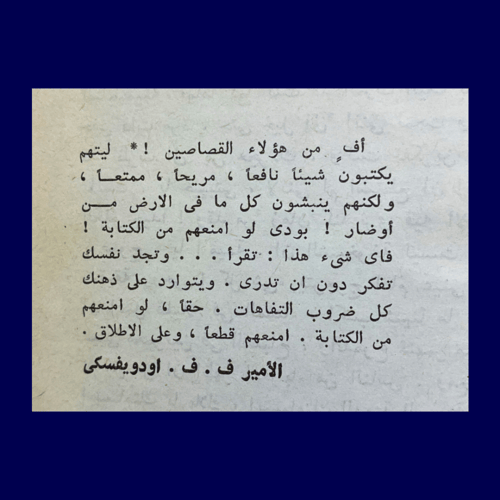 أفٍ من هؤلاء القصاصين !* ليتهم
يكتبون شيئاً نافعاً ، مريحاً ، ممتعـــا ،
ولكنهم ينبشون كل ما فى الارض مــن
أوضار ! بودى لو امنعهم من الكتابة !
فاى شىء هذا : تقرأ . . . وتجد نفسك
تفكر دون ان تدرى . ويتوارد على ذهنك
كل ضروب التفاهات . حقاً ، لو امنعهم
من الكتابة . امنعهم قطعاً ، وعلى الاطلاق .
الأمير ف . ف . اودويفسكى